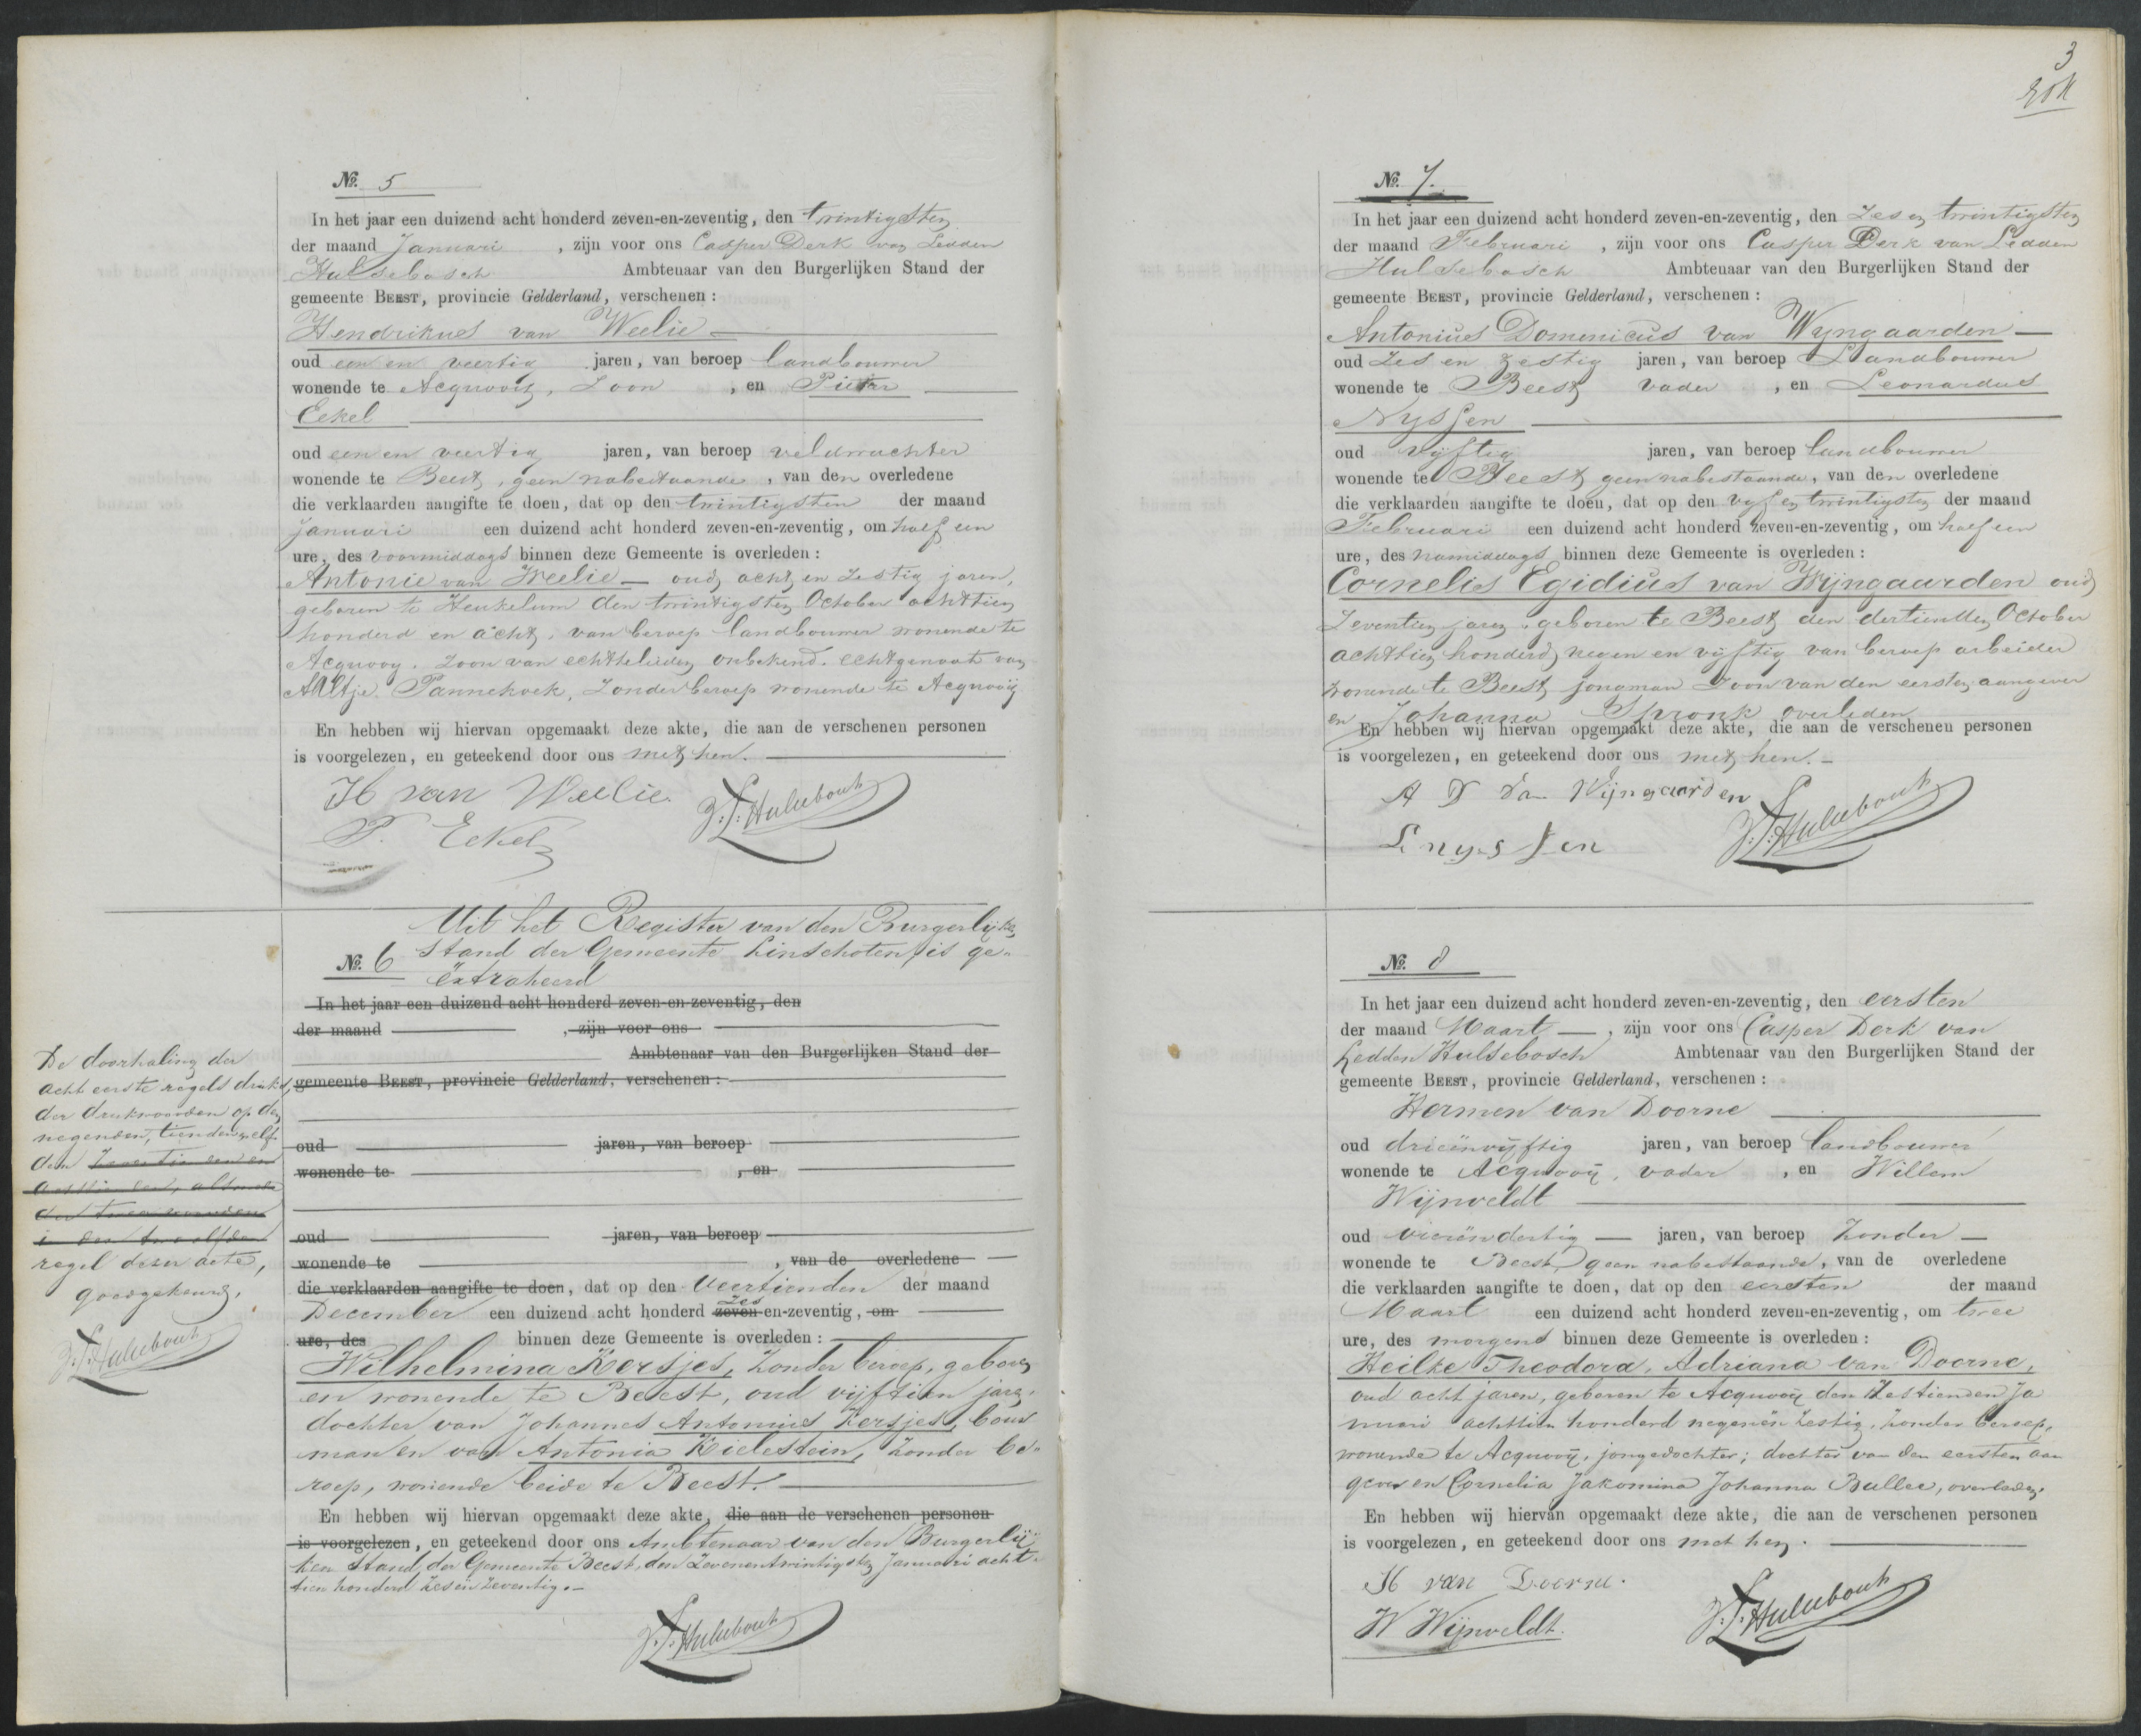 No. 5
In het jaar een duizend acht honderd zeven-en-zeventig, den twintigsten
der maand Januari , zijn voor ons Casper Derk van Ledden
Hulsebosch Ambtenaar van den Burgerlijken Stand der
gemeente BEEST, provincie Gelderland, verschenen:
Hendrikus van Weelie
oud een en veertig jaren, van beroep landbouwer
wonende te Acquooij, Zoon , en Pieter
Eekel
oud een en veertig jaren, van beroep veldwachter
wonende te Beest, geen nabestaande, van den overledene
die verklaarden aangifte te doen, dat op den twintigsten der maand
Januari een duizend acht honderd zeven-en-zeventig, om half een
ure, des voormiddags binnen deze Gemeente is overleden:
Antonie van Weelie oud acht en Zestig jaren,
geboren te Heukelum den twintigsten October achttien
honderd en acht, van beroep landbouwer wonende te
Acquooy. Zoon van echtelieden onbekend. echtgenoot van
Aaltje Pannekoek, Zonder beroep wonende te Acquooij
En hebben wij hiervan opgemaakt deze akte, die aan de verschenen personen
is voorgelezen, en geteekend door ons met hen.
H van Weelie.
P. Eekel
Hulsebosch
Uit het Register van den Burgerlijken
No. 6 Stand der Gemeente Linschoten, is ge-
ëxtraheerd
In het jaar een duizend acht honderd zeven-en-zeventig, den
der maand , zijn voor ons
Ambtenaar van den Burgerlijken Stand der
gemeente BEEST, provincie Gelderland, verschenen:
oud jaren, van beroep
wonende te , en
oud jaren, van beroep
wonende te , van de overledene
die verklaarden aangifte te doen, dat op den Veertienden der maand
zes
December een duizend acht honderd zeven-en-zeventig, om
ure, des binnen deze Gemeente is overleden:
Wilhelmina Kersjes, Zonder beroep, geboren
en wonende te Beest, oud vijftien jaren,
dochter van Johannes Antonius Kersjes, bouw
man en van Antonia Kielestein, Zonder be-
roep, wonende beide te Beest.
En hebben wij hiervan opgemaakt deze akte, die aan de verschenen personen
is voorgelezen, en geteekend door ons Ambtenaar van den Burgerlij
ken Stand der Gemeente Beest, den Zevenentwintigsten Januari acht-
tien honderd Zesen Zeventig.
Hulsebosch
De doorhaling der
acht eerste regels druks,
der drukwoorden op den
negenden, tienden, elf
den Zeventienden en
achttienden, alsmede
der twee woorden
in den twaalfden
regel dezer acte,
goedgekeurd,
Hulsebosch
3
No. 7.
In het jaar een duizend acht honderd zeven-en-zeventig, den Zes en twintigsten
der maand Februari , zijn voor ons Casper Derk van Ledden
Hulsebosch Ambtenaar van den Burgerlijken Stand der
gemeente BEEST, provincie Gelderland, verschenen:
Antonius Domenicus van Wyngaarden
oud Zes en Zestig jaren, van beroep Landbouwer
wonende te Beest vader , en Leonardus
Nyssen
oud vijftig jaren, van beroep landbouwer
wonende te Beest geen nabestaande, van den overledene
die verklaarden aangifte te doen, dat op den vyf en twintigsten der maand
Februari een duizend acht honderd zeven-en-zeventig, om half een
ure, des namiddags binnen deze Gemeente is overleden:
Cornelis Egidius van Wijngaarden oud
Zeventien jaren, geboren te Beest den dertienden October
achttien honderd negen en vijftig van beroep arbeider
wonende te Beest jongman Zoon van den eersten aangever
en Johanna Spronk overleden
En hebben wij hiervan opgemaakt deze akte, die aan de verschenen personen
is voorgelezen, en geteekend door ons met hen.
A D van Wijngaarden
L nyssen
Hulsebosch
No. 8
In het jaar een duizend acht honderd zeven-en-zeventig, den eersten
der maand Maart , zijn voor ons Casper Derk van
Ledden Hulsebosch Ambtenaar van den Burgerlijken Stand der
gemeente BEEST, provincie Gelderland, verschenen:
Hermen van Doorne
oud drieënvijftig jaren, van beroep landbouwer
wonende te Acquooij, vader , en Willem
Wijnveldt
oud vierendertig jaren, van beroep Zonder
wonende te Beest, geen nabestaande, van de overledene
die verklaarden aangifte te doen, dat op den eersten der maand
Maart een duizend acht honderd zeven-en-zeventig, om twee
ure, des morgens binnen deze Gemeente is overleden:
Heilke Theodora, Adriana van Doorne,
oud acht jaren, geboren te Acquooij den Zestienden Ja
nuari achttien honderd negenën Zestig, Zonder beroep,
wonende te Acquooij, jongedochter; dochter van den eersten aan
gever en Cornelia Jakomina Johanna Bullee, overleden.
En hebben wij hiervan opgemaakt deze akte, die aan de verschenen personen
is voorgelezen, en geteekend door ons met hen.
H van Doorne.
W Wijnveldt.
Hulsebosch